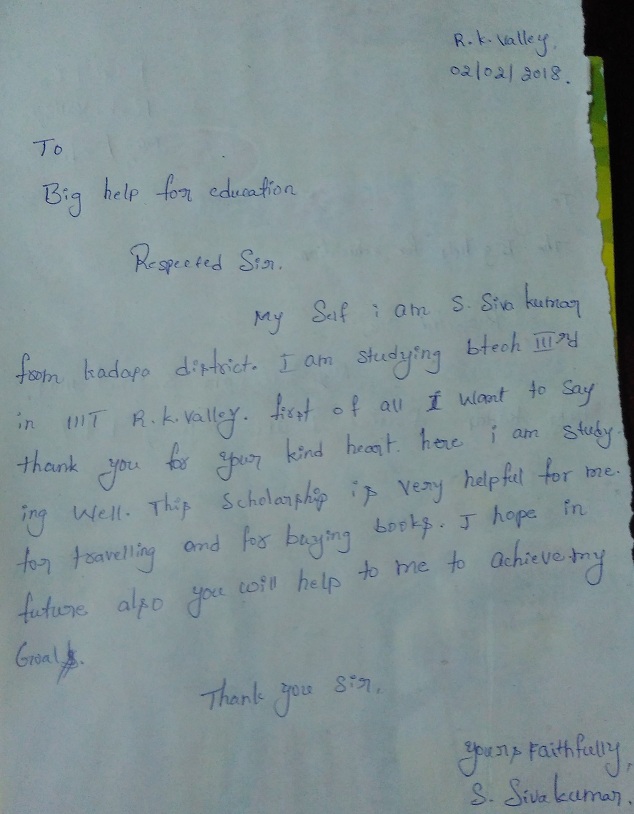 R.k. valley,
02/02/2018.
To
Big help for education
Respected Sir.
My Self i am S. Siva kumar
from kadapa district. I am studying btech III rd
in IIIT R.k.valley. first of all I want to say
thank you for your kind heart. here i am study-
ing well. This Scholarship is very helpful for me.
for travelling and for buying books. I hope in
future also you will help to me to achieve my
Goals.
Thank you sir.
yours Faithfully,
S. Siva kumar.